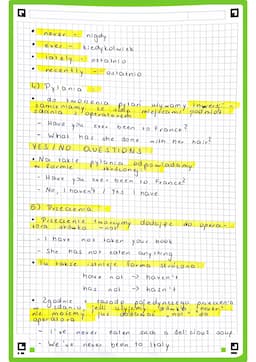 • never - nigdy
• ever - kiedykolwiek
• lately - ostatnio
• recently - ostatnio
4) Pytania
• do tworzenia pytań używamy inwersji -
zamieniamy ze sobą miejscami podmiot
zdania z operatorem
- Have you ever been to France?
- What has she done with her hair?
YES/NO QUESTIONS
• Na takie pytania odpowiadamy
w formie skróconej
- Have you ever been to France?
- No, I haven't / Yes I have
5) Przeczenia
• Przeczenie tworzymy dodając do opera-
tora słówko -not
- I have not taken your book
- She has not eaten anything
• Tu także istnieje forma skrócona
have not → haven't
has not → hasn't
• Zgodnie z zasadą pojedynczego przeczenia
w zdaniu, jeśli użyjemy słówka "never"
nie możemy już dodawać "not" do
operatora
- I've never eaten such a delicious soup
- We've never been to Italy